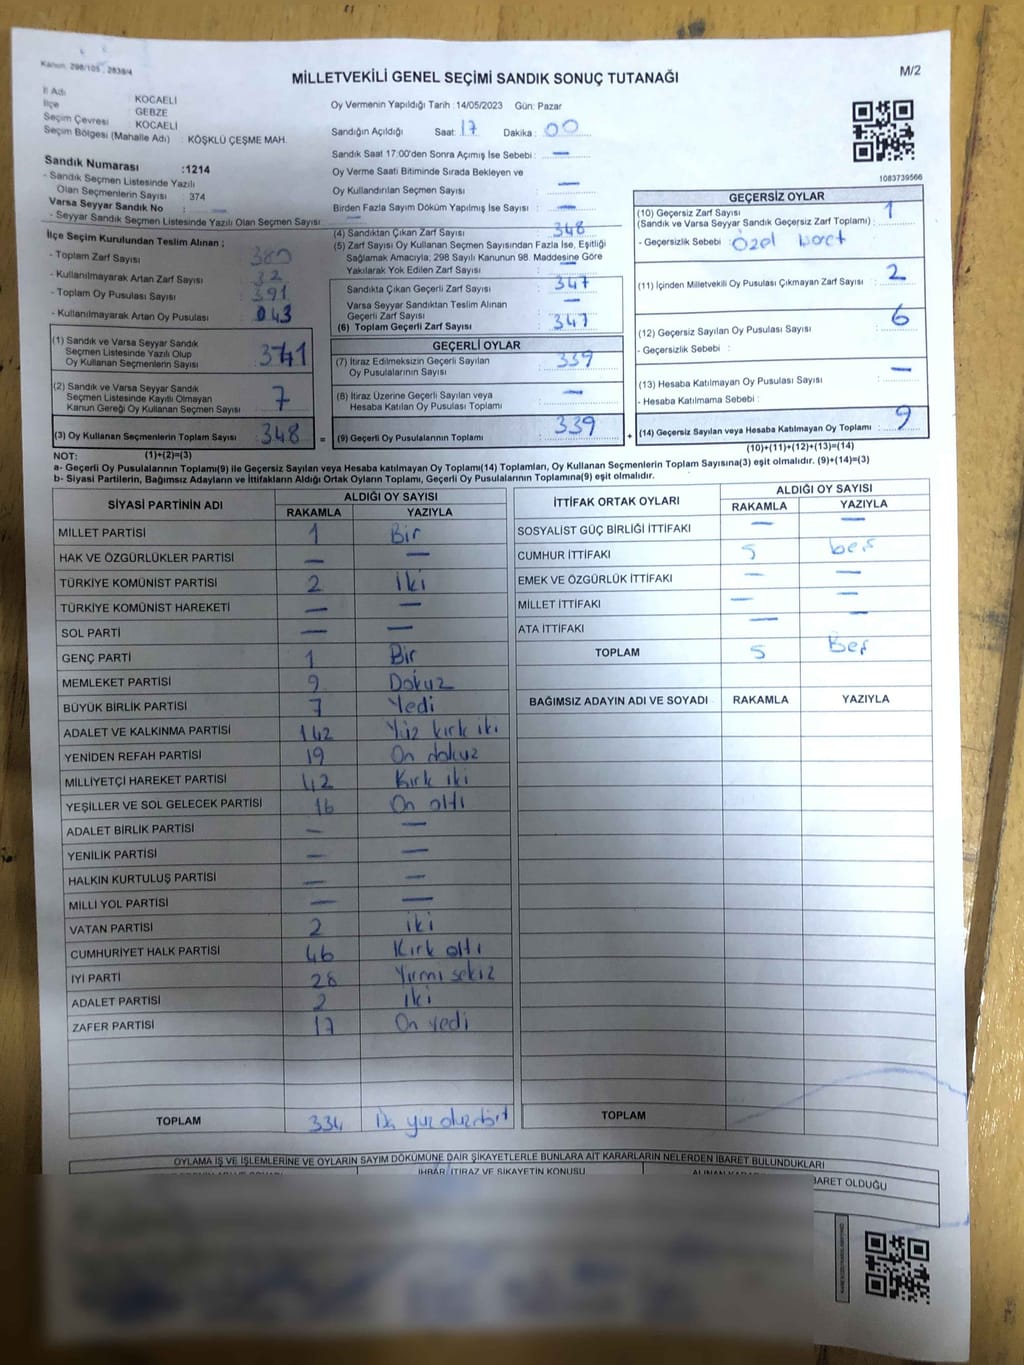 Kanun: 298/105 , 2839/4
MİLLETVEKİLİ GENEL SEÇİMİ SANDIK SONUÇ TUTANAĞI
M/2
İl Adı KOCAELİ
İlçe GEBZE
Seçim Çevresi KOCAELİ
Seçim Bölgesi (Mahalle Adı) : KÖŞKLÜ ÇEŞME MAH.
Oy Vermenin Yapıldığı Tarih :14/05/2023 Gün: Pazar
Sandığın Açıldığı Saat: 17 Dakika : 00
Sandık Saat 17:00'den Sonra Açımış İse Sebebi : —
Oy Verme Saati Bitiminde Sırada Bekleyen ve
Oy Kullandırılan Seçmen Sayısı : —
Birden Fazla Sayım Döküm Yapılmış İse Sayısı : —
1083739566
Sandık Numarası :1214
- Sandık Seçmen Listesinde Yazılı
Olan Seçmenlerin Sayısı : 374
Varsa Seyyar Sandık No : —
- Seyyar Sandık Seçmen Listesinde Yazılı Olan Seçmen Sayısı: —
İlçe Seçim Kurulundan Teslim Alınan ;
- Toplam Zarf Sayısı : 380
- Kullanılmayarak Artan Zarf Sayısı : 32
- Toplam Oy Pusulası Sayısı : 391
- Kullanılmayarak Artan Oy Pusulası : 043
(1) Sandık ve Varsa Seyyar Sandık
Seçmen Listesinde Yazılı Olup
Oy Kullanan Seçmenlerin Sayısı : 341
(2) Sandık ve Varsa Seyyar Sandık
Seçmen Listesinde Kayıtlı Olmayan
Kanun Gereği Oy Kullanan Seçmen Sayısı : 7
(3) Oy Kullanan Seçmenlerin Toplam Sayısı : 348 =
(4) Sandıktan Çıkan Zarf Sayısı : 348
(5) Zarf Sayısı Oy Kullanan Seçmen Sayısından Fazla İse, Eşitliği
Sağlamak Amacıyla; 298 Sayılı Kanunun 98. Maddesine Göre
Yakılarak Yok Edilen Zarf Sayısı : —
Sandıkta Çıkan Geçerli Zarf Sayısı : 347
Varsa Seyyar Sandıktan Teslim Alınan
Geçerli Zarf Sayısı : —
(6) Toplam Geçerli Zarf Sayısı : 347
GEÇERLİ OYLAR
(7) İtiraz Edilmeksizin Geçerli Sayılan
Oy Pusulalarının Sayısı : 339
(8) İtiraz Üzerine Geçerli Sayılan veya
Hesaba Katılan Oy Pusulası Toplamı : —
(9) Geçerli Oy Pusulalarının Toplamı : 339 +
GEÇERSİZ OYLAR
(10) Geçersiz Zarf Sayısı
(Sandık ve Varsa Seyyar Sandık Geçersiz Zarf Toplamı) : 1
- Geçersizlik Sebebi : Özel
(11) İçinden Milletvekili Oy Pusulası Çıkmayan Zarf Sayısı : 2
(12) Geçersiz Sayılan Oy Pusulası Sayısı : 6
- Geçersizlik Sebebi :
(13) Hesaba Katılmayan Oy Pusulası Sayısı : —
- Hesaba Katılmama Sebebi :
(14) Geçersiz Sayılan veya Hesaba Katılmayan Oy Toplamı : 9
NOT: (1)+(2)=(3)
(10)+(11)+(12)+(13)=(14)
a- Geçerli Oy Pusulalarının Toplamı(9) ile Geçersiz Sayılan veya Hesaba katılmayan Oy Toplamı(14) Toplamları, Oy Kullanan Seçmenlerin Toplam Sayısına(3) eşit olmalıdır. (9)+(14)=(3)
b- Siyasi Partilerin, Bağımsız Adayların ve İttifakların Aldığı Ortak Oyların Toplamı, Geçerli Oy Pusulalarının Toplamına(9) eşit olmalıdır.
SİYASİ PARTİNİN ADI
ALDIĞI OY SAYISI
RAKAMLA YAZIYLA
MİLLET PARTİSİ 1 Bir
HAK VE ÖZGÜRLÜKLER PARTİSİ — —
TÜRKİYE KOMÜNİST PARTİSİ 2 iki
TÜRKİYE KOMÜNİST HAREKETİ — —
SOL PARTİ — —
GENÇ PARTİ 1 Bir
MEMLEKET PARTİSİ 9 Dokuz
BÜYÜK BİRLİK PARTİSİ 7 Yedi
ADALET VE KALKINMA PARTİSİ 142 Yüz kırk iki
YENİDEN REFAH PARTİSİ 19 On dokuz
MİLLİYETÇİ HAREKET PARTİSİ 42 Kırk iki
YEŞİLLER VE SOL GELECEK PARTİSİ 16 On altı
ADALET BİRLİK PARTİSİ — —
YENİLİK PARTİSİ — —
HALKIN KURTULUŞ PARTİSİ — —
MİLLİ YOL PARTİSİ — —
VATAN PARTİSİ 2 iki
CUMHURİYET HALK PARTİSİ 46 Kırk altı
İYİ PARTİ 28 Yirmi sekiz
ADALET PARTİSİ 2 iki
ZAFER PARTİSİ 17 On yedi
TOPLAM 334
İTTİFAK ORTAK OYLARI
ALDIĞI OY SAYISI
RAKAMLA YAZIYLA
SOSYALİST GÜÇ BİRLİĞİ İTTİFAKI — —
CUMHUR İTTİFAKI 5 beş
EMEK VE ÖZGÜRLÜK İTTİFAKI — —
MİLLET İTTİFAKI — —
ATA İTTİFAKI — —
TOPLAM 5 Beş
BAĞIMSIZ ADAYIN ADI VE SOYADI RAKAMLA YAZIYLA
TOPLAM
OYLAMA İŞ VE İŞLEMLERİNE VE OYLARIN SAYIM DÖKÜMÜNE DAİR ŞİKAYETLERLE BUNLARA AİT KARARLARIN NELERDEN İBARET BULUNDUKLARI
İHBAR, İTİRAZ VE ŞİKAYETİN KONUSU
İBARET OLDUĞU